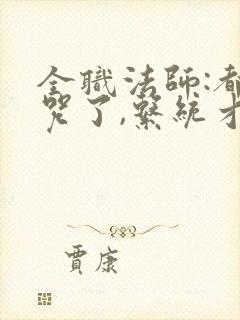 全職法師:都
咒了,繫統才
賈康